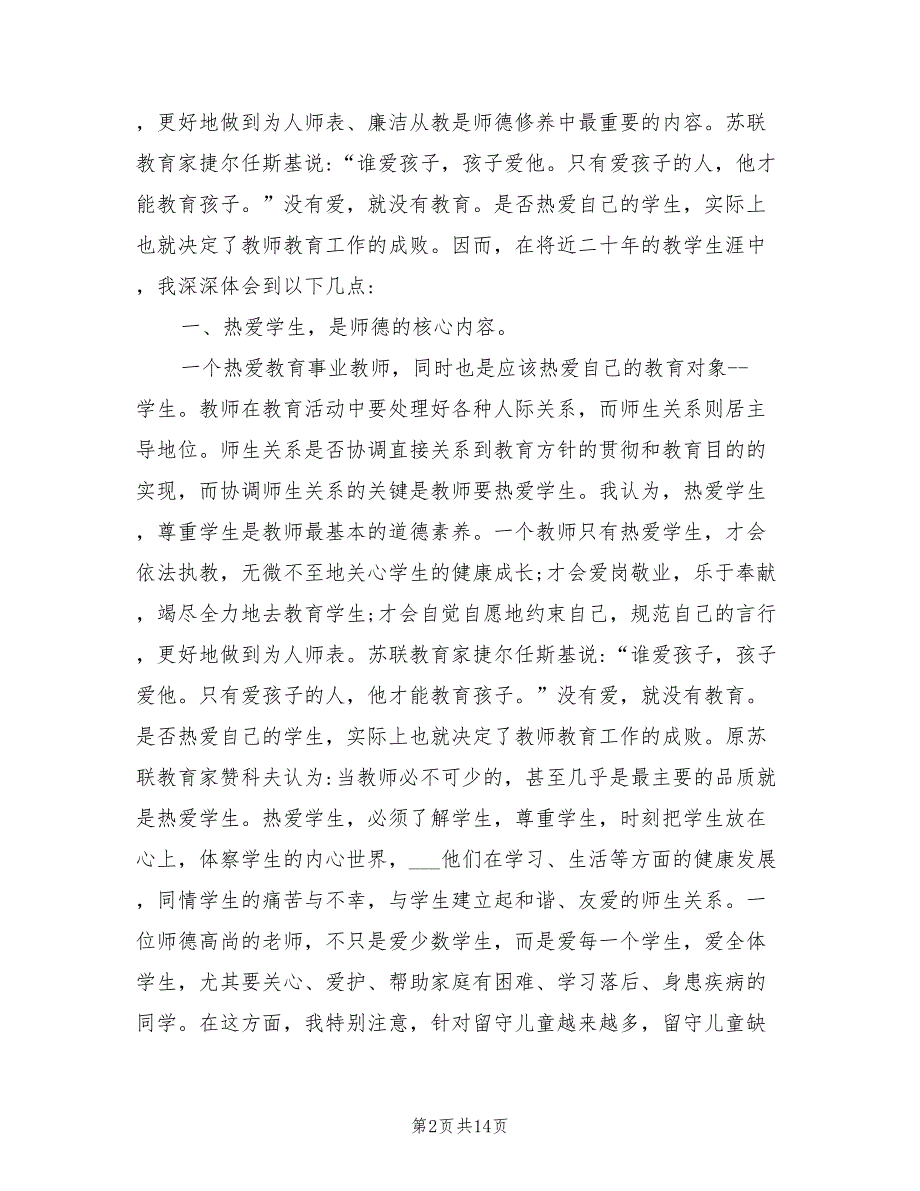 ，更好地做到为人师表、廉洁从教是师德修养中最重要的内容。苏联
教育家捷尔任斯基说:“谁爱孩子，孩子爱他。只有爱孩子的人，他才
能教育孩子。”没有爱，就没有教育。是否热爱自己的学生，实际上
也就决定了教师教育工作的成败。因而，在将近二十年的教学生涯中
，我深深体会到以下几点:
一、热爱学生，是师德的核心内容。
一个热爱教育事业教师，同时也是应该热爱自己的教育对象--
学生。教师在教育活动中要处理好各种人际关系，而师生关系则居主
导地位。师生关系是否协调直接关系到教育方针的贯彻和教育目的的
实现，而协调师生关系的关键是教师要热爱学生。我认为，热爱学生
，尊重学生是教师最基本的道德素养。一个教师只有热爱学生，才会
依法执教，无微不至地关心学生的健康成长;才会爱岗敬业，乐于奉献
，竭尽全力地去教育学生;才会自觉自愿地约束自己，规范自己的言行
，更好地做到为人师表。苏联教育家捷尔任斯基说:“谁爱孩子，孩子
爱他。只有爱孩子的人，他才能教育孩子。”没有爱，就没有教育。
是否热爱自己的学生，实际上也就决定了教师教育工作的成败。原苏
联教育家赞科夫认为:当教师必不可少的，甚至几乎是最主要的品质就
是热爱学生。热爱学生，必须了解学生，尊重学生，时刻把学生放在
心上，体察学生的内心世界，___他们在学习、生活等方面的健康发展
，同情学生的痛苦与不幸，与学生建立起和谐、友爱的师生关系。一
位师德高尚的老师，不只是爱少数学生，而是爱每一个学生，爱全体
学生，尤其要关心、爱护、帮助家庭有困难、学习落后、身患疾病的
同学。在这方面，我特别注意，针对留守儿童越来越多，留守儿童缺
第2页共14页